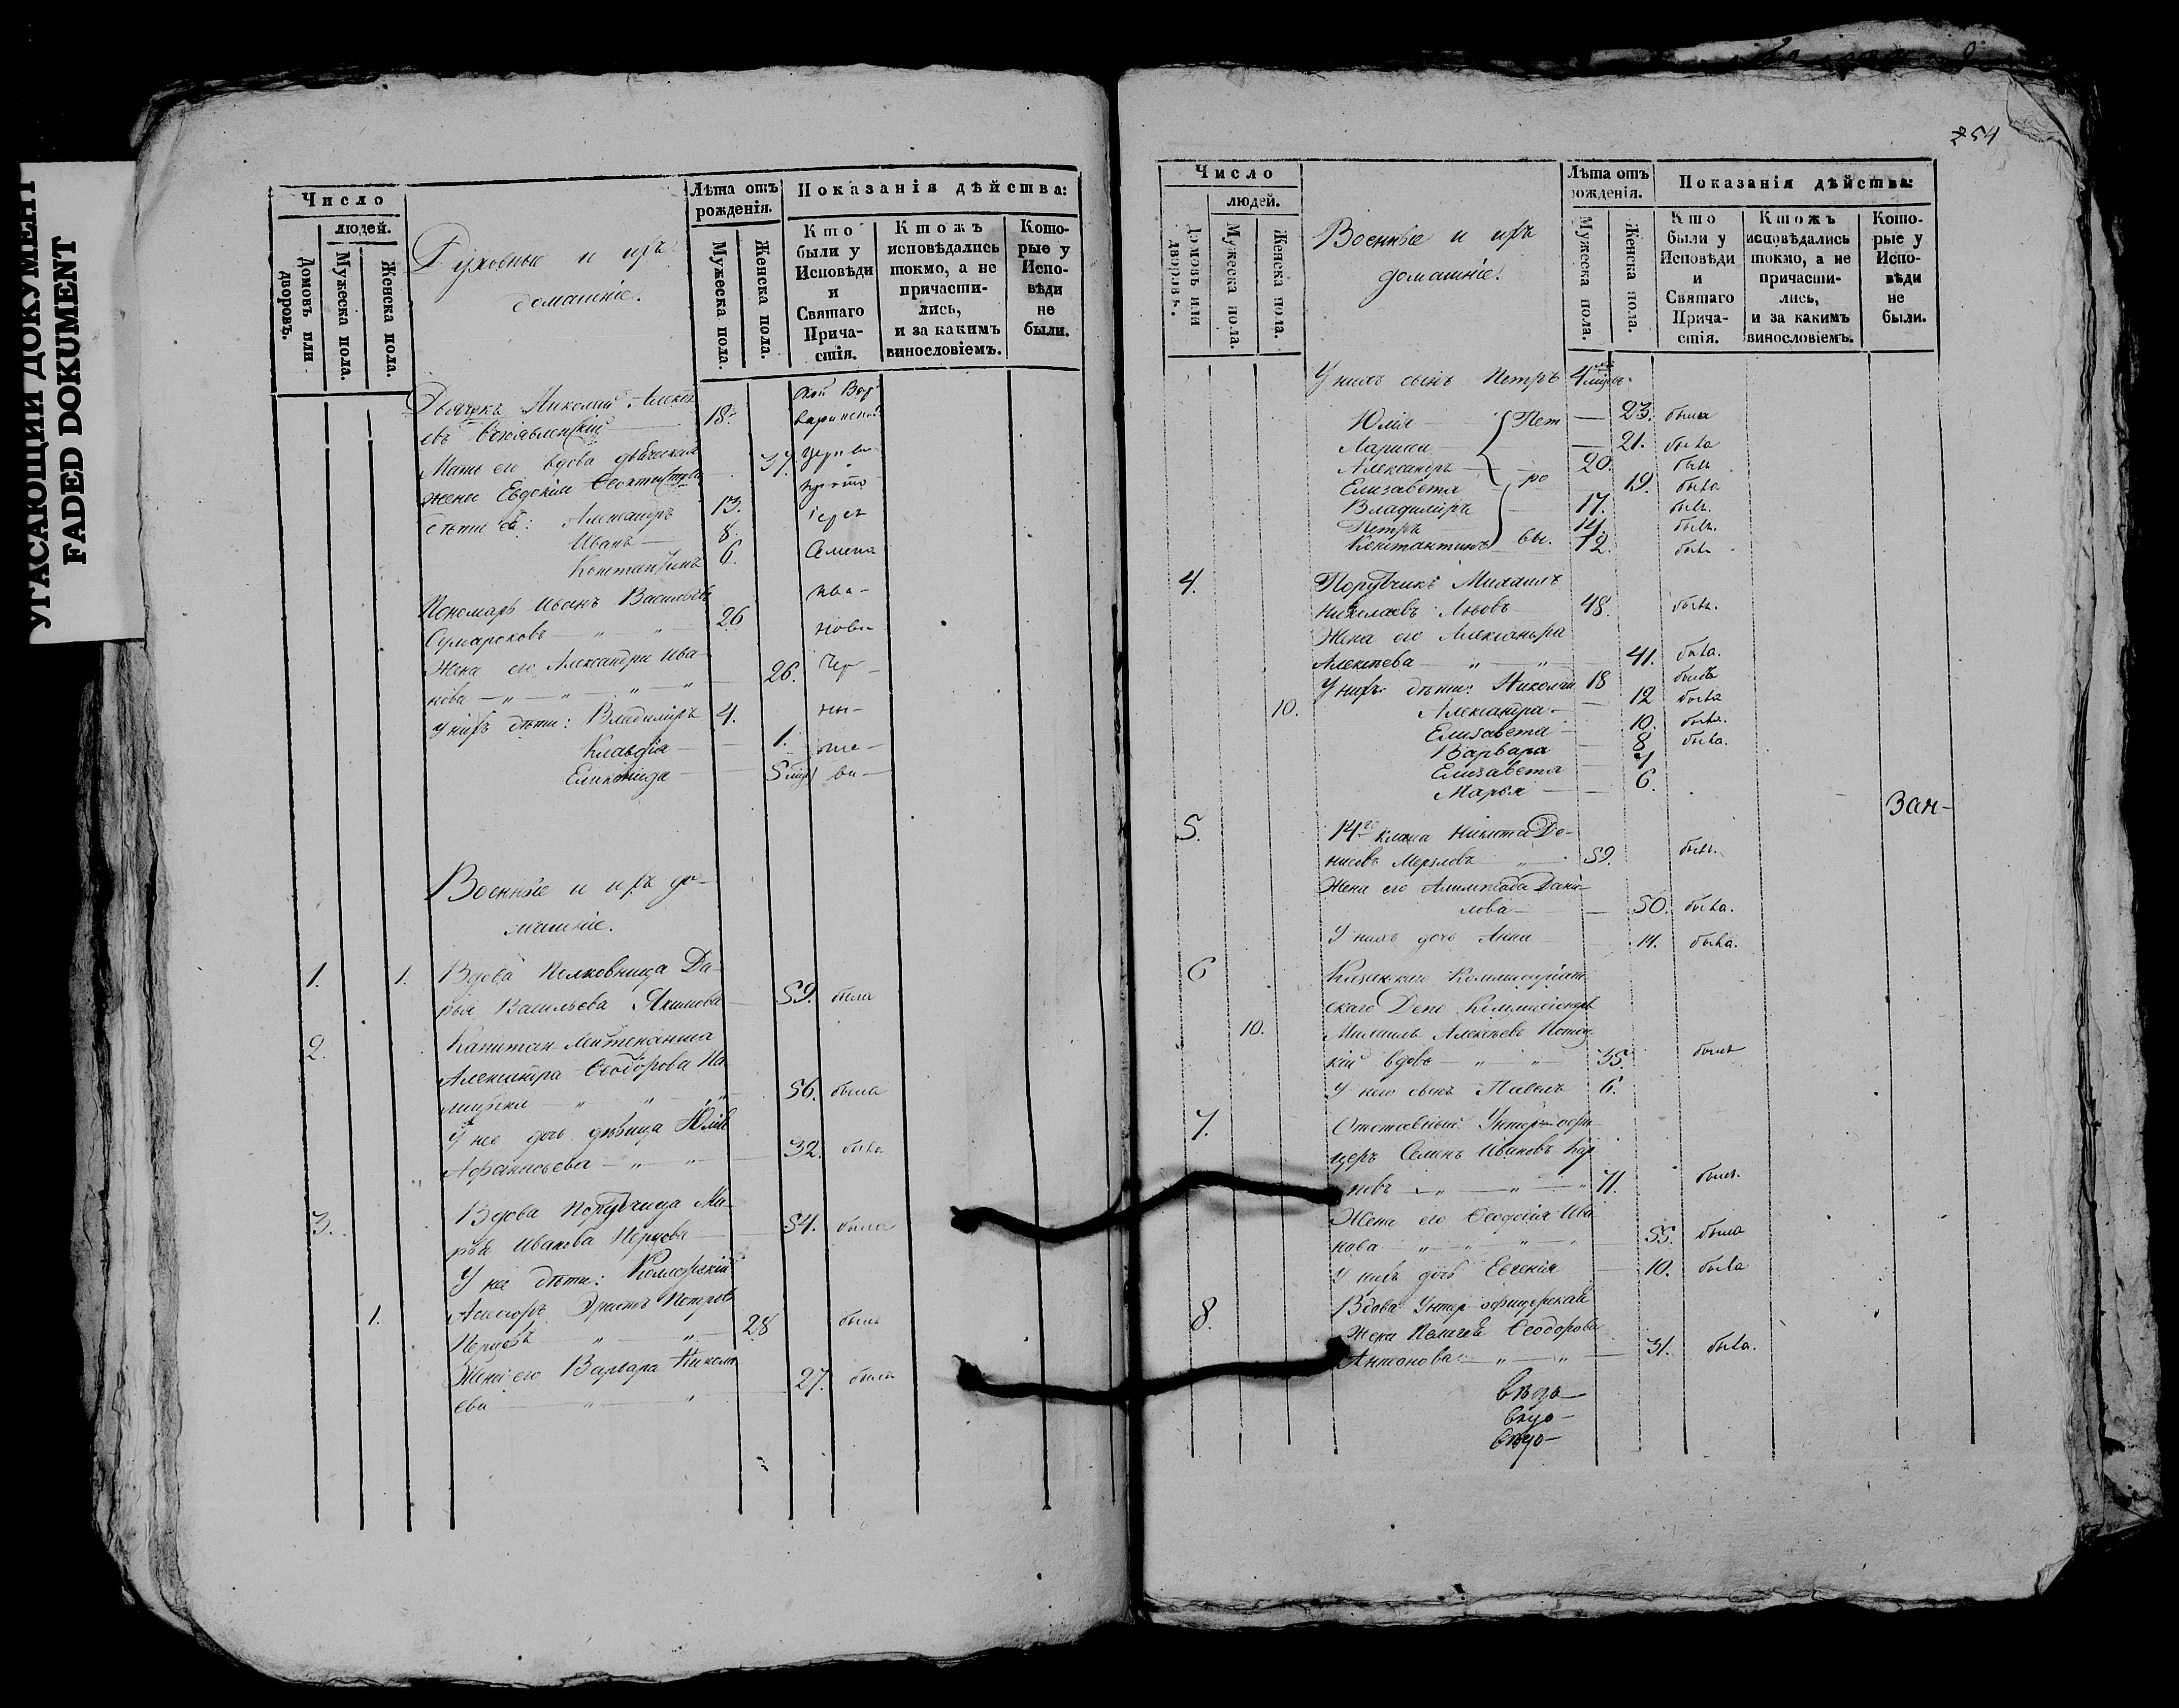 УГАСАЮЩИЙ ДОКУМЕНТ
FADED DOKUMENT
Число
людей.
Домовъ или дворовъ.
Мужеска пола.
Женска пола.
Духовные и ихъ
домашніе.
Лѣта отъ рожденія.
Мужеска пола.
Женска пола.
Показанія дѣйства:
Кто были у Исповѣди и Святаго Прича-стія.
Ктожъ исповѣдались токмо, а не причасти-лись, и за какимъ винословіемъ.
Кото-рые у Испо-вѣди не были.
Дьячекъ Николай Алексѣ
евъ 18.
Мать его вдова дьяческая
жена Евдокія 37.
дѣти ея: Александръ 13.
Иванъ 8.
Константинъ 6.
Пономарь Иванъ Васильевъ
Сумароковъ — „ — „ 26
Жена его Александра Ива-
нова — „ — „ — „ — „ 26.
У нихъ дѣти: Владиміръ 4.
Клавдія — 1.
5
Вар-
варинской
церкви
прото-
іерея
Семена
Ива-
нова
Чер-
ны-
ше-
ва-
Военные и ихъ до-
машніе.
1. 1. Вдова Полковница Да-
рья Васильева Якимова — 59. была
2. Капитан-Лейтенанша
Александра Ѳеодорова
— „ „ „ 56. была
У нее дочь дѣвица Юлія
Афанасьева — „ — „ — 32. была
3. Вдова Порутчица Ма-
рья Иванова Перцова — 54. была
У нее дѣти: Коллежскій
1. Ассесоръ Эрастъ Петровъ
Перцовъ „ — „ 28 былъ
Жена его Варвара Никола
ева „ „ 27. была
254
Число
людей.
Домовъ или дворовъ.
Мужеска пола.
Женска пола.
Военные и ихъ
домашніе.
Лѣта отъ рожденія.
Мужеска пола.
Женска пола.
Показанія дѣйства:
Кто были у Исповѣди и Святаго Прича-стія.
Ктожъ исповѣдались токмо, а не причасти-лись, и за какимъ винословіемъ.
Кото-рые у Испо-вѣди не были.
У нихъ сынъ Петръ 4
Юлія Пет — 23. была
Лариса — 21. была
Александръ — 20. былъ
Елизавета ро 19. была
Владиміръ — 17. былъ.
Петръ 14. былъ.
Константинъ вы. 12. былъ
4. Порутчикъ Михаилъ
Николаевъ Львовъ — 48. былъ.
Жена его Александра
Алексѣева — „ — „ — 41. была.
У нихъ дѣти: Николай 18 былъ
10. Александра — 12 была
Елизавета — 10. была.
Варвара — 8. была.
Елизавета — 7
Марья — 6.
Зан-
5. 14го класа Никита Де-
нисовъ Мерзловъ „ 59. былъ.
Жена его Алимпіада Дани-
лова — 50. была.
У нихъ дочь Анна — 14. была.
6 Казанскаго Коммисаріат-
скаго Депо Коммисіонеръ
10. Михаилъ Алексѣевъ
кій вдовъ — „ „ 35. былъ
У него сынъ Павелъ 6.
7. Отставный Унтер-офи-
церъ Семенъ Ивановъ
новъ — „ — „ — „ 71. былъ.
Жена его Ѳеодосія Ива-
нова „ — „ — „ — „ 55. была
У нихъ дочь Евгенія — 10. была
8. Вдова Унтер-офицерская
Жена Пелагея Ѳеодорова
Антонова — „ — „ — 31. была.